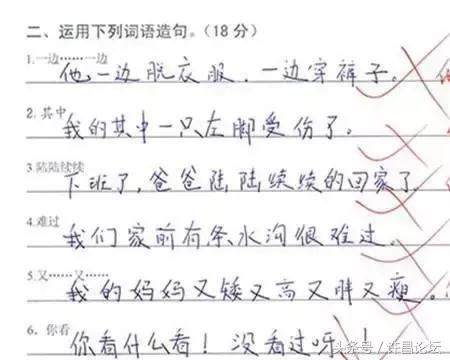 二、运用下列词语造句。(18分)
1.一边……一边
他一边脱衣服,一边穿裤子。
2.其中
我的其中一只左脚受伤了。
3陆陆续续
下班了,爸爸陆陆续续的回家了
4.难过
我们家前有条水沟很难过。
5.又……又……
我的妈妈又矮又高又胖又瘦。
6. 你看
你看什么看!没看过呀!
头条号/许昌论坛